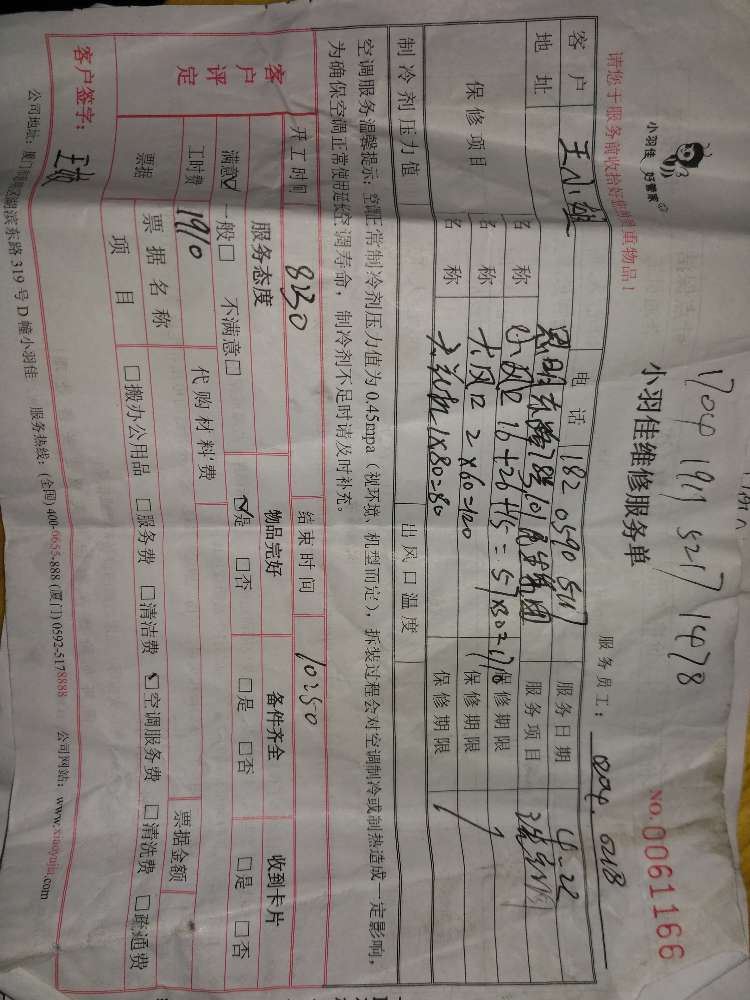 1704 1911 5217 1478
小羽佳 好管家
小羽佳维修服务单
NO.0061166
请您于服务前收拾好您的贵重物品!
服务员工:
客户 电话 182 0590 5117 服务日期 4-22
地址 服务项目
保修项目 名称 小风口 16+26+15=57×30=1710 保修期限
名称 大风口 2×60=120 保修期限 /
名称 1×80=80 保修期限
制冷剂压力值 出风口温度
空调服务温馨提示:空调正常制冷剂压力值为0.45mpa(视环境、机型而定),拆装过程会对空调制冷或制热造成一定影响,
为确保空调正常使用延长空调寿命,制冷剂不足时请及时补充。
客户评定 开工时间 8:30 结束时间 10:50
服务态度 物品完好 备件齐全 收到卡片
满意☑ 一般□ 不满意□ ☑是 □否 □是 □否 □是 □否
工时费 1910 代购材料费 票据金额
票据 票据名称 项目 □搬办公用品 □服务费 □清洁费 ☑空调服务费 □清洗费 □疏通费
客户签字:
湖滨东路319号D幢小羽佳 服务热线:(全国)400-0655-888(厦门)0592-5178888 公司网站:www.xiaoyujia.com
公司地址: